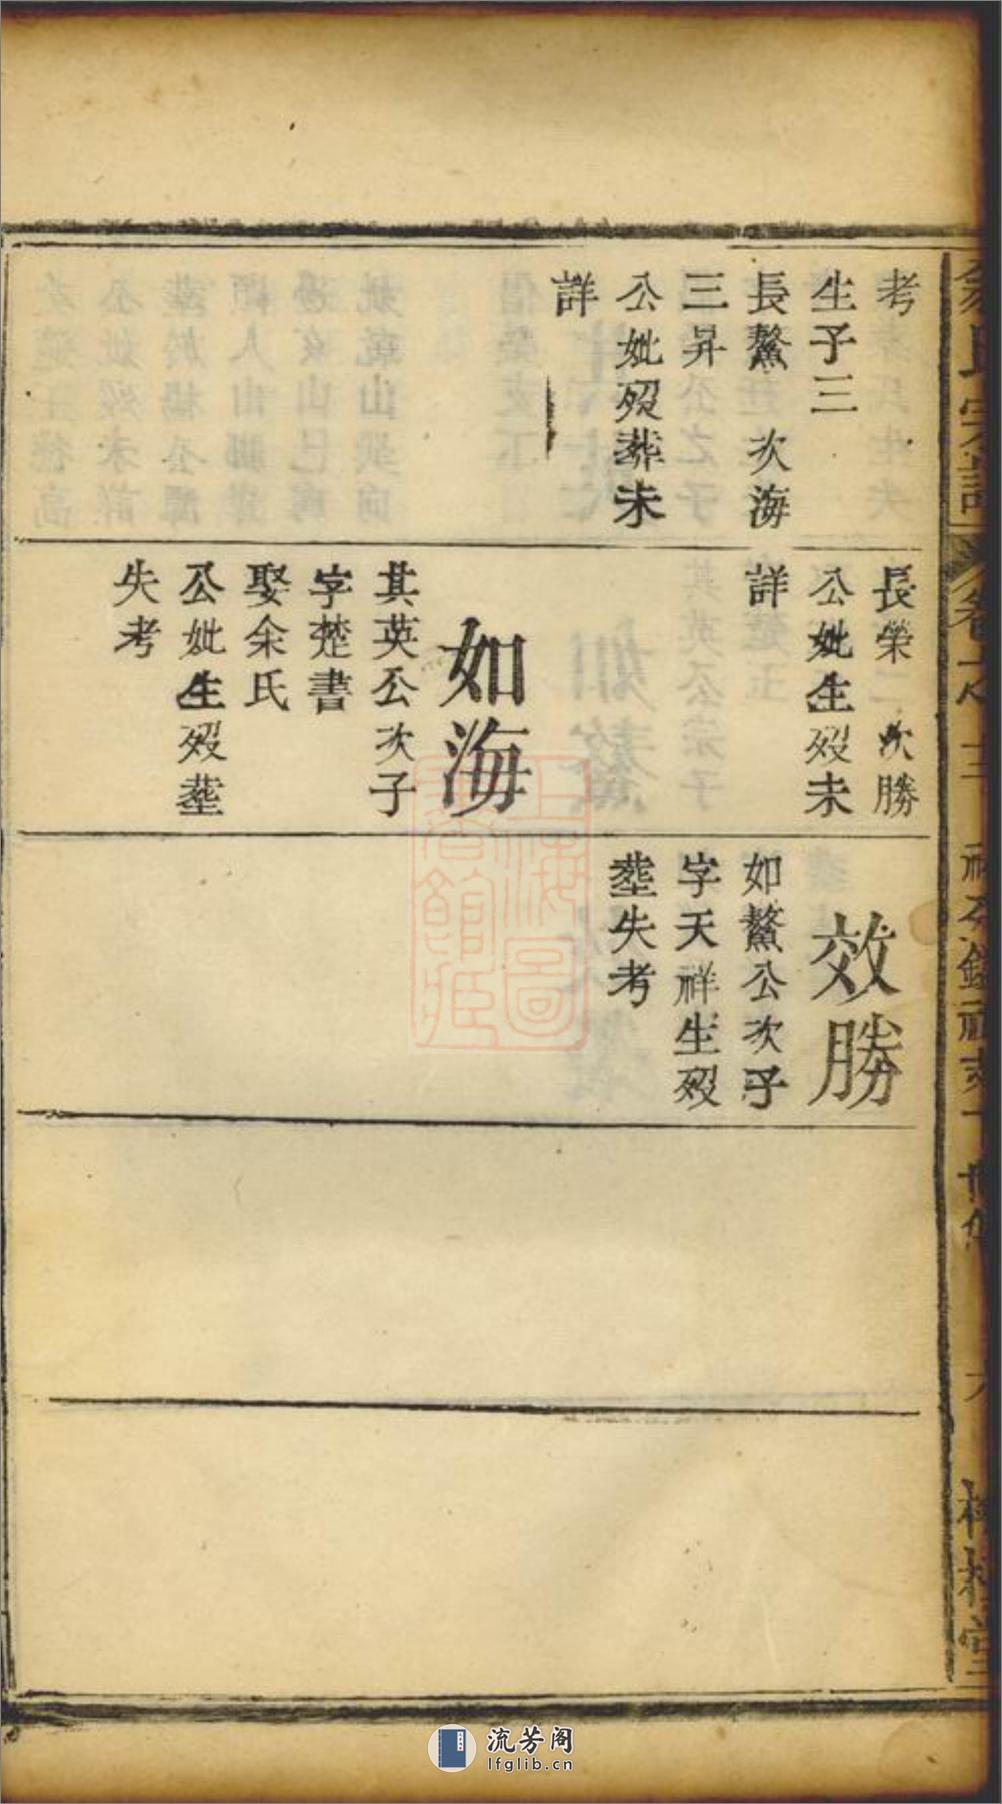 考
生子三
長鰲　次海
三昇
公妣殁葬未
詳
長榮　次勝
公妣生殁未
詳
如海
其英公次子
字楚書
娶余氏
公妣生殁塟
失考
效勝
如鰲公次子
字天祥生殁
塟失考
上海圖書館藏
流芳阁
lfglib.cn